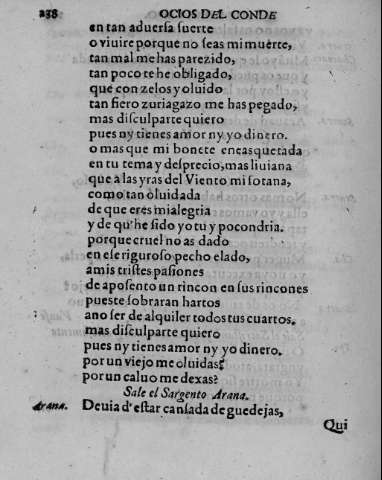 238 OCIOS DEL CONDE
en tan aduersa suerte
o viuire porque no seas mi muerte,
tan mal me has parezido,
tan poco te he obligado,
que con zelos y oluido
tan fiero zuriagazo me has pegado,
mas disculparte quiero
pues ny tienes amor ny yo dinero.
o mas que mi bonete encasquetada
en tu tema y desprecio, mas liuiana
que a las yras del Viento mi sotana,
como tan oluidada
de que eres mi alegria
y de qu'he sido yo tu ypocondria.
porque cruel no as dado
en ese riguroso pecho elado,
a mis tristes pasiones
de aposento un rincon en sus rincones
pues te sobraran hartos
a no ser de alquiler todos tus cuartos.
mas disculparte quiero
pues ny tienes amor ny yo dinero.
por un viejo me oluidas?
por un caluo me dexas?
Sale el Sargento Arana.
Arana. Deuia d'estar cansada de guedejas,
Qui